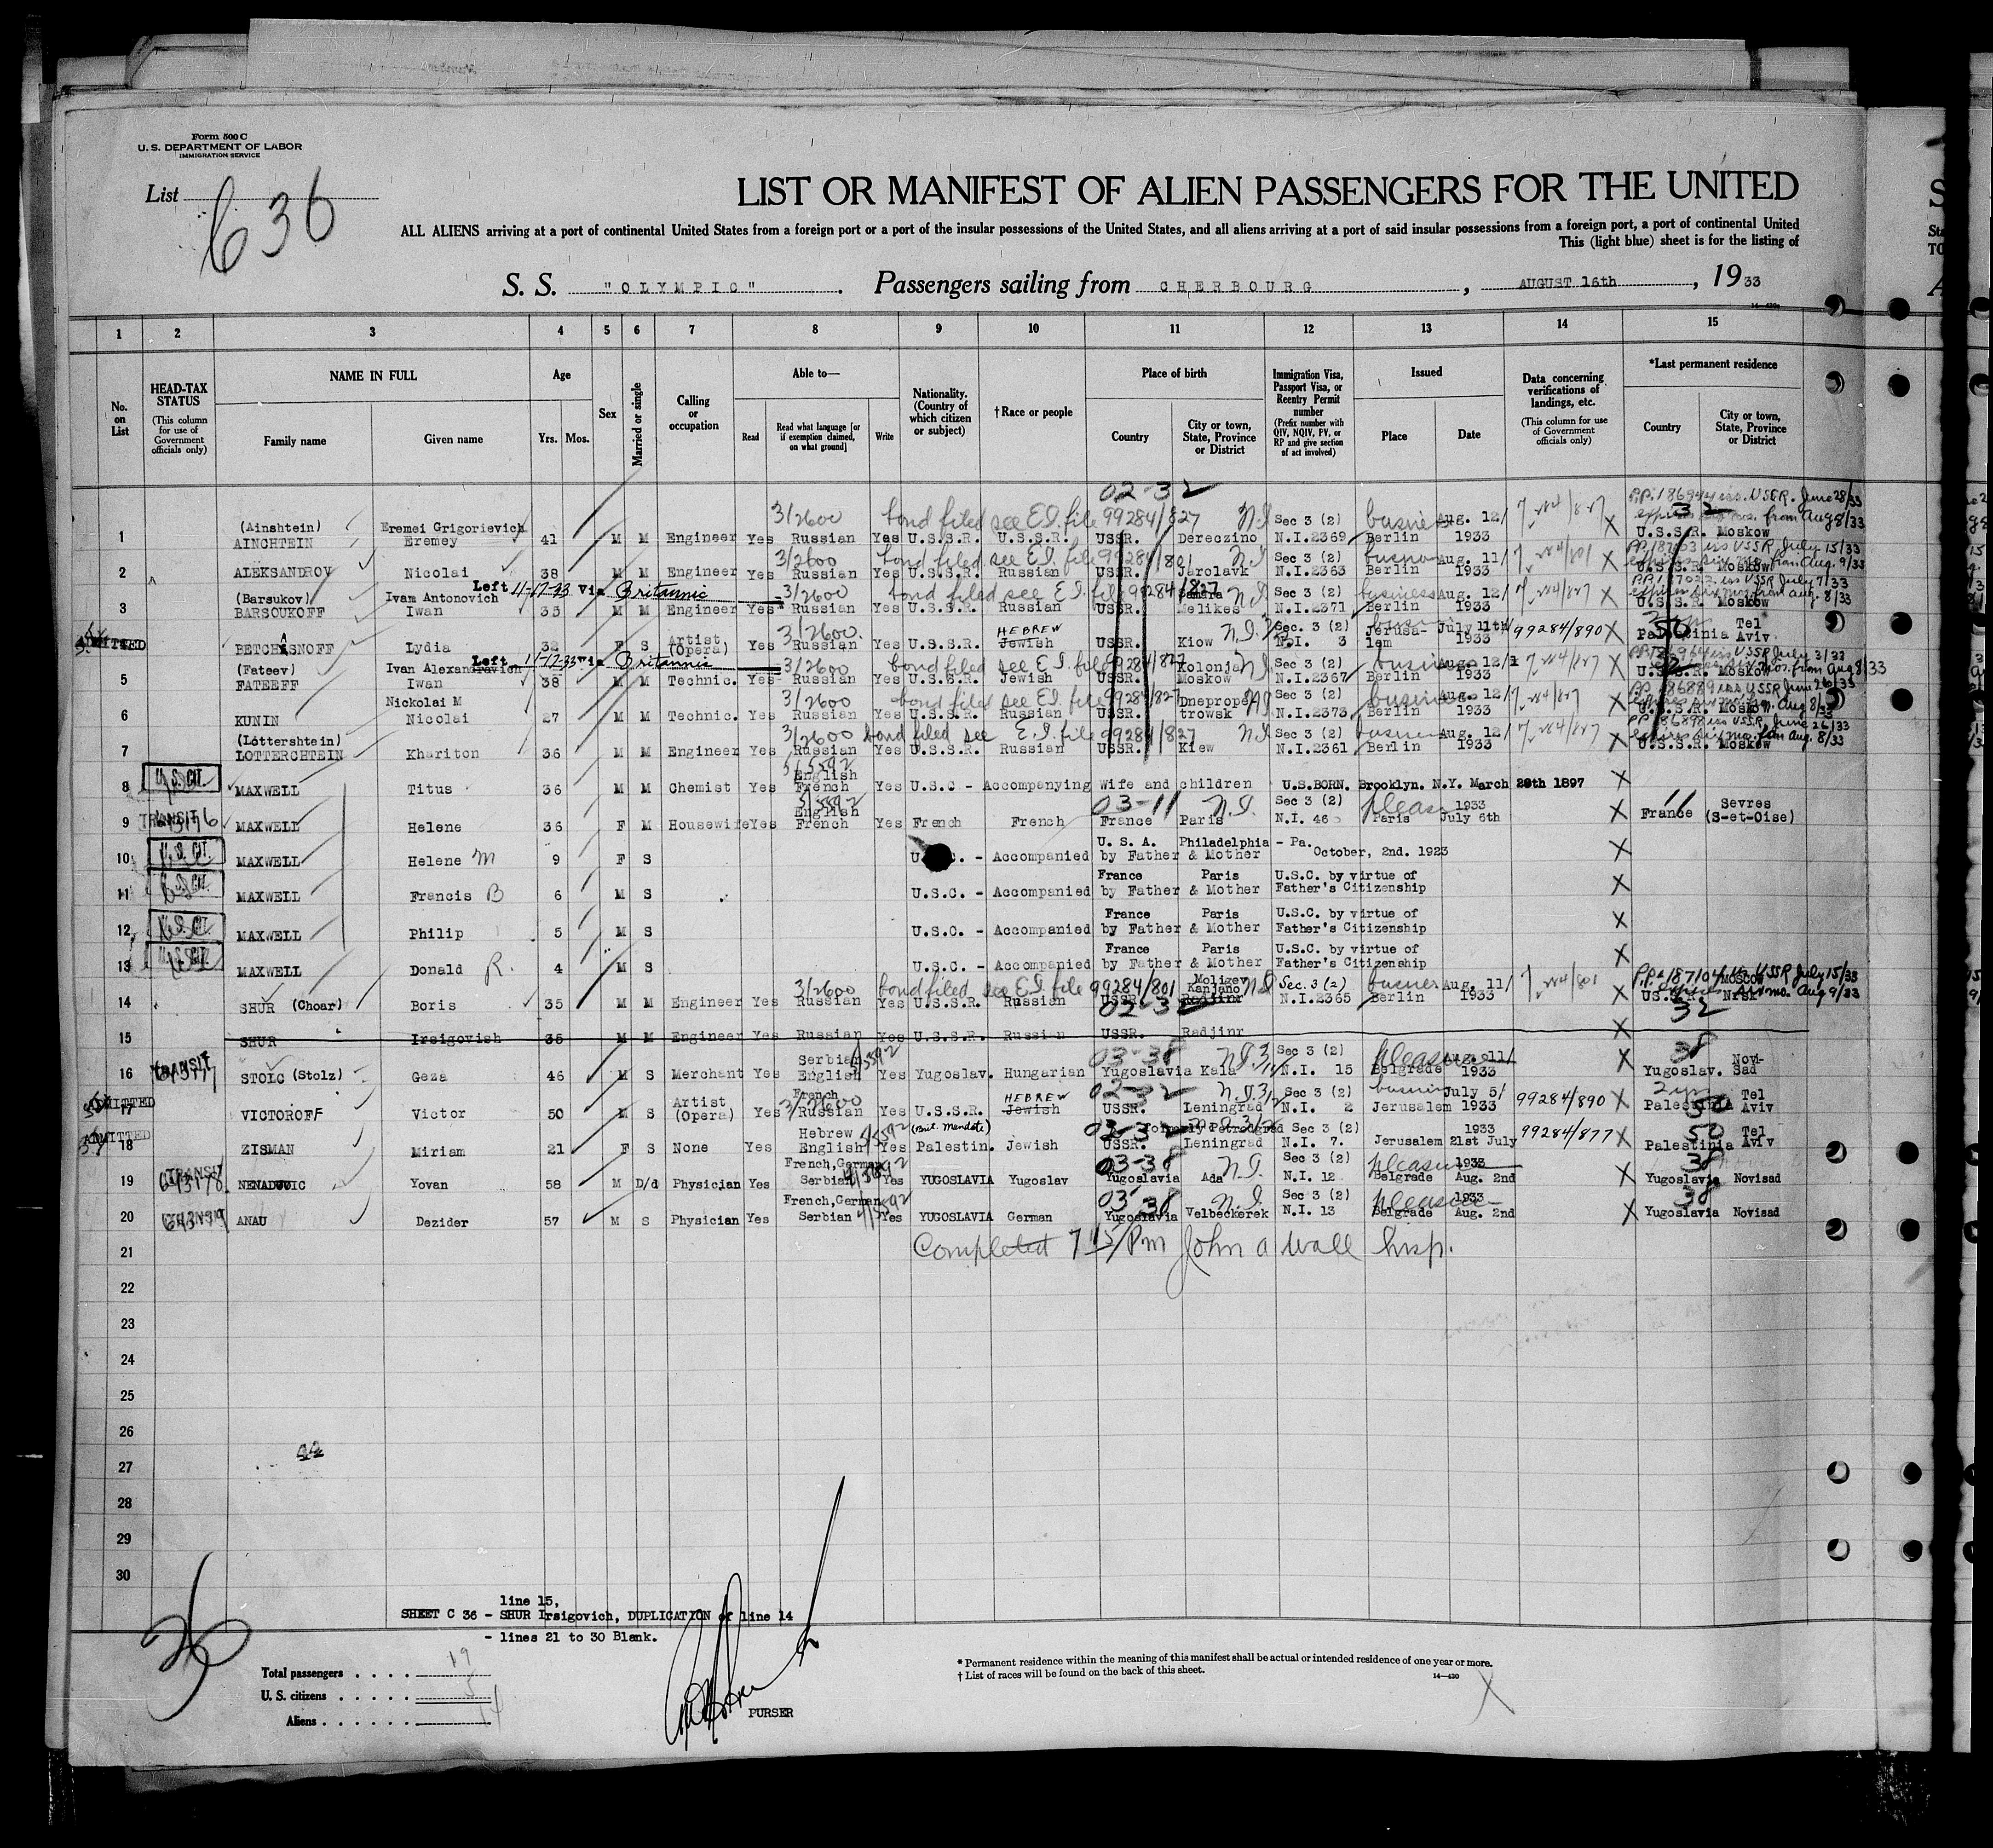 Form 500 C
U. S. DEPARTMENT OF LABOR
IMMIGRATION SERVICE
List C 36
LIST OR MANIFEST OF ALIEN PASSENGERS FOR THE UNITED
ALL ALIENS arriving at a port of continental United States from a foreign port or a port of the insular possessions of the United States, and all aliens arriving at a port of said insular possessions from a foreign port, a port of continental United
This (light blue) sheet is for the listing of
S. S. "OLYMPIC". Passengers sailing from CHERBOURG, AUGUST 16th, 1933
14—430
1 2 3 4 5 6 7 8 9 10 11 12 13 14 15
No. on List
HEAD-TAX STATUS (This column for use of Government officials only)
NAME IN FULL
Family name Given name
Age
Yrs. Mos.
Sex
Married or single
Calling or occupation
Able to—
Read Read what language [or if exemption claimed, on what ground] Write
Nationality. (Country of which citizen or subject)
† Race or people
Place of birth
Country City or town, State, Province or District
Immigration Visa, Passport Visa, or Reentry Permit number (Prefix number with QIV, NQIV, PV, or RP and give section of act involved)
Issued
Place Date
Data concerning verifications of landings, etc. (This column for use of Government officials only)
*Last permanent residence
Country City or town, State, Province or District
02-32
3/2600 bond filed see E.I. file 99284/827 N.I.
1 (Ainshtein) AINCHTEIN Eremei Grigorievich Eremey 41 M M Engineer Yes Russian Yes U.S.S.R. U.S.S.R. USSR. Dereczino Sec 3 (2) N.I.2369 Berlin Aug. 12/ 1933 X U.S.S.R. Moskow
3/2600 bond filed see E.I. file 99284/801 N.I.
2 ALEKSANDROV Nicolai 38 M M Engineer Yes Russian Yes U.S.S.R. Russian USSR. Jarolavk Sec 3 (2) N.I.2363 Berlin Aug. 11/ 1933 X U.S.S.R. Moskow
Left 11-17-33 via Britannic 3/2600 bond filed see E.I. file 99284/827 N.I.
3 (Barsukov) BARSOUKOFF Ivam Antonovich Iwan 35 M M Engineer Yes Russian Yes U.S.S.R. Russian USSR. Melikes Sec 3 (2) N.I.2371 Berlin Aug. 12/ 1933 X U.S.S.R. Moskow
ADMITTED BETCHASNOFF Lydia 32 F S Artist (Opera) Yes 3/2600 Russian Yes U.S.S.R. HEBREW Jewish USSR. Kiow Sec. 3 (2) N.I. 3 Jerusa-lem July 11th 1933 99284/890 X Palestinia Tel Aviv
Left 11-17-33 via Britannic 3/2600 bond filed see E.I. file 99284/827 N.I.
5 (Fateev) FATEEFF Ivan Alexandravich Iwan 38 M M Technic. Yes Russian Yes U.S.S.R. Jewish USSR. Kolonja Moskow Sec 3 (2) N.I.2367 Berlin Aug. 12/ 1933 X U.S.S.R. Moskow
3/2600 bond filed see E.I. file 99284/827 N.I.
6 KUNIN Nickolai M Nicolai 27 M M Technic. Yes Russian Yes U.S.S.R. Russian USSR. Dneprope trowsk Sec 3 (2) N.I.2373 Berlin Aug. 12/ 1933 X U.S.S.R. Moskow
3/2600 bond filed see E.I. file 99284/827 N.I.
7 (Lottershtein) LOTTERCHTEIN Khariton 36 M M Engineer Yes Russian Yes U.S.S.R. Russian USSR. Kiew Sec 3 (2) N.I.2361 Berlin Aug. 12/ 1933 X U.S.S.R. Moskow
8 U.S. CIT. MAXWELL Titus 36 M M Chemist Yes English French Yes U.S.C - Accompanying Wife and children U.S.BORN. Brooklyn. N.Y. March 28th 1897 X
9 TRANSIT MAXWELL Helene 36 F M Housewife Yes English French Yes French French 03-11 France N.I. Paris Sec 3 (2) N.I. 46 Paris 1933 July 6th X France Sevres (S-et-Oise)
10 U.S. CIT. MAXWELL Helene M 9 F S U.S.C. - Accompanied by Father & Mother U. S. A. Philadelphia - Pa. October, 2nd. 1923 X
11 U.S. CIT. MAXWELL Francis B 6 M S U.S.C. - Accompanied by Father & Mother France Paris U.S.C. by virtue of Father's Citizenship X
12 U.S. CIT. MAXWELL Philip 5 M S U.S.C. - Accompanied by Father & Mother France Paris U.S.C. by virtue of Father's Citizenship X
13 U.S. CIT. MAXWELL Donald R. 4 M S U.S.C. - Accompanied by Father & Mother France Paris U.S.C. by virtue of Father's Citizenship X
3/2600 bond filed see E.I. file 99284/801 N.I.
14 SHUR (Choar) Boris 35 M M Engineer Yes Russian Yes U.S.S.R. Russian USSR. 02-32 Radjinr Sec. 3 (2) N.I.2365 Berlin Aug. 11/ 1933 X 32
15 SHUR Irsigovish 35 M M Engineer Yes Russian Yes U.S.S.R. Russian USSR. Radjinr X
16 TRANSIT STOLC (Stolz) Geza 46 M S Merchant Yes Serbian English Yes Yugoslav. Hungarian 03-38 Yugoslavia Kala Sec 3 (2) N.I. 15 pleasure Belgrade Aug. 11/ 1933 X 38 Yugoslav. Novi-Sad
17 ADMITTED VICTOROFF Victor 50 M S Artist (Opera) Yes French 3/2600 Russian Yes U.S.S.R. HEBREW Jewish 02-32 USSR. Leningrad Sec 3 (2) N.I. 2 Jerusalem July 5/ 1933 99284/890 X Palestinia Tel Aviv
18 ADMITTED ZISMAN Miriam 21 F S None Yes Hebrew English Yes (Brit. Mandate) Palestin. Jewish USSR. formerly Petrograd Leningrad Sec 3 (2) N.I. 7. Jerusalem 1933 21st July 99284/877 X 50 Palestinia Tel Aviv
19 TRANSIT NENADOVIC Yovan 58 M D/d Physician Yes French,German Serbian Yes YUGOSLAVIA Yugoslav 03-38 Yugoslavia N.I. Ada Sec 3 (2) N.I. 12 pleasure Belgrade 1933 Aug. 2nd X 38 Yugoslavia Novisad
20 ANAU Dezider 57 M S Physician Yes French,German Serbian Yes YUGOSLAVIA German 03-38 Yugoslavia N.I. Velbeckerek Sec 3 (2) N.I. 13 pleasure Belgrade 1933 Aug. 2nd X 38 Yugoslavia Novisad
21 Completed 7 15/Pm John a Wall Insp.
22
23
24
25
26
44
27
28
29
30
line 15,
SHEET C 36 - SHUR Irsigovich, DUPLICATION of line 14
- lines 21 to 30 Blank.
36
Total passengers . . . . 19
U. S. citizens . . . . . 5
Aliens . . . . . . 14
PURSER
* Permanent residence within the meaning of this manifest shall be actual or intended residence of one year or more.
† List of races will be found on the back of this sheet.
14—430